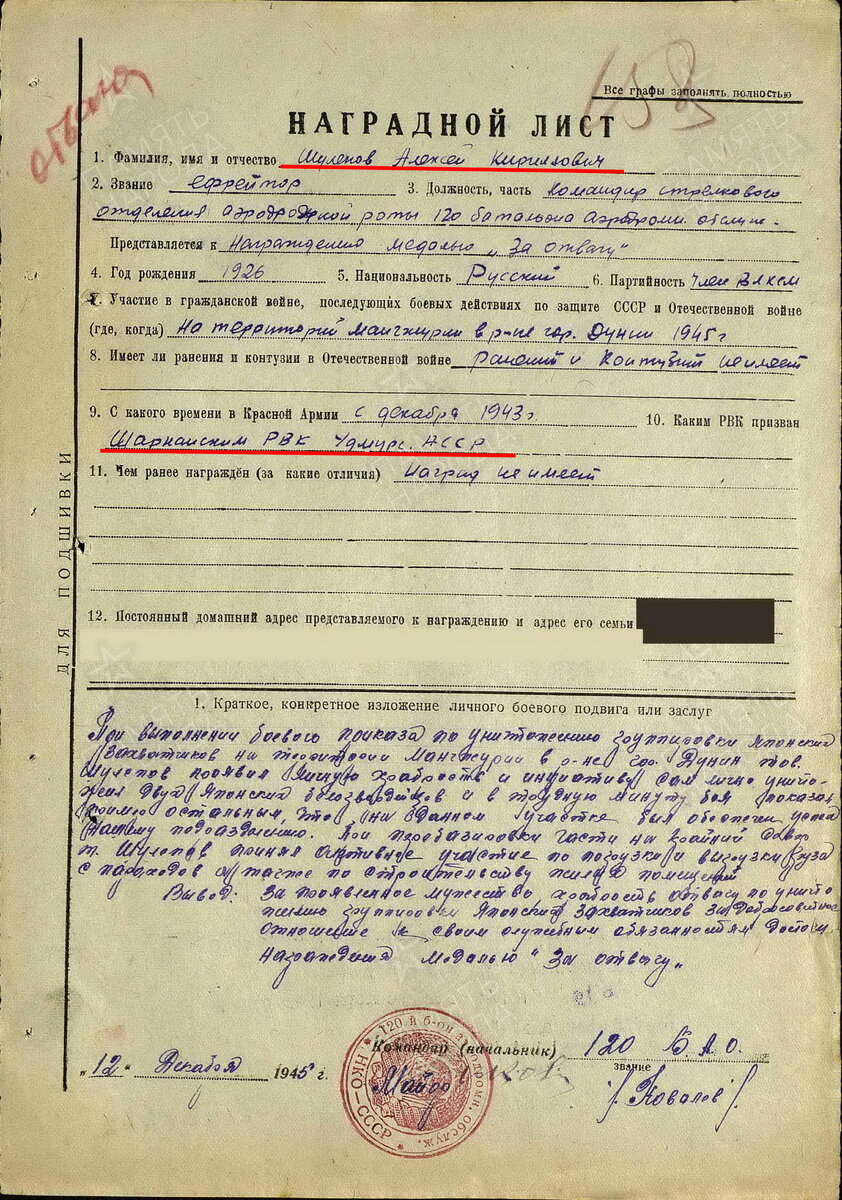 отвага
158
Все графы заполнять полностью
НАГРАДНОЙ ЛИСТ
1. Фамилия, имя и отчество Шулепов Алексей Кириллович
2. Звание Ефрейтор 3. Должность, часть Командир стрелкового
отделения аэродромной роты 120 батальона аэродромн. обслуж.
Представляется к Награждению медалью „За отвагу"
4. Год рождения 1926 5. Национальность Русский 6. Партийность Член ВЛКСМ
7. Участие в гражданской войне, последующих боевых действиях по защите СССР и Отечественной войне
(где, когда) На территорий Манчжурии в р-не гор. Дунин 1945 г
8. Имеет ли ранения и контузии в Отечественной войне ранений и Контузий не имеет
9. С какого времени в Красной Армии с декабря 1943 г. 10. Каким РВК призван
РВК Удмурс. АССР
11. Чем ранее награждён (за какие отличия) Наград не имеет
12. Постоянный домашний адрес представляемого к награждению и адрес его семьи
ДЛЯ ПОДШИВКИ
1. Краткое, конкретное изложение личного боевого подвига или заслуг
При выполнении боевого приказа по уничтожению группировки Японских
захватчиков на территории Манчжурии в р-не гор. Дунин тов.
Шулепов проявил личную храбрость и инициативу сам лично уничто-
жил двух Японских и в трудную минуту боя показал
пример остальным, что на данном участке был обеспечен успех
нашему подразделению. При перебазировки части на крайний Север
т. Шулепов принял активное участие по погрузки и выгрузки груза
с пароходов а также по строительству жилых помещений
Вывод: За проявленное мужество храбрость отвагу по уничто
жению группировки Японских захватчиков за добросовестное
отношение к своим служебным обязанностям достоин
награждения медалью "За отвагу„
Командир (начальник) 120 Б.А.О.
звание
„12" Декабря 1945 г. Майор /Ковалев/
120-й б-он аэродромн. обслуж. НКО-СССР